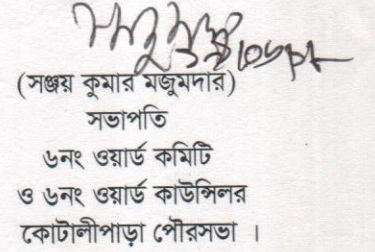 (সঞ্জয় কুমার মজুমদার)
সভাপতি
৬নং ওয়ার্ড কমিটি
ও ৬নং ওয়ার্ড কাউন্সিলর
কোটালীপাড়া পৌরসভা ।